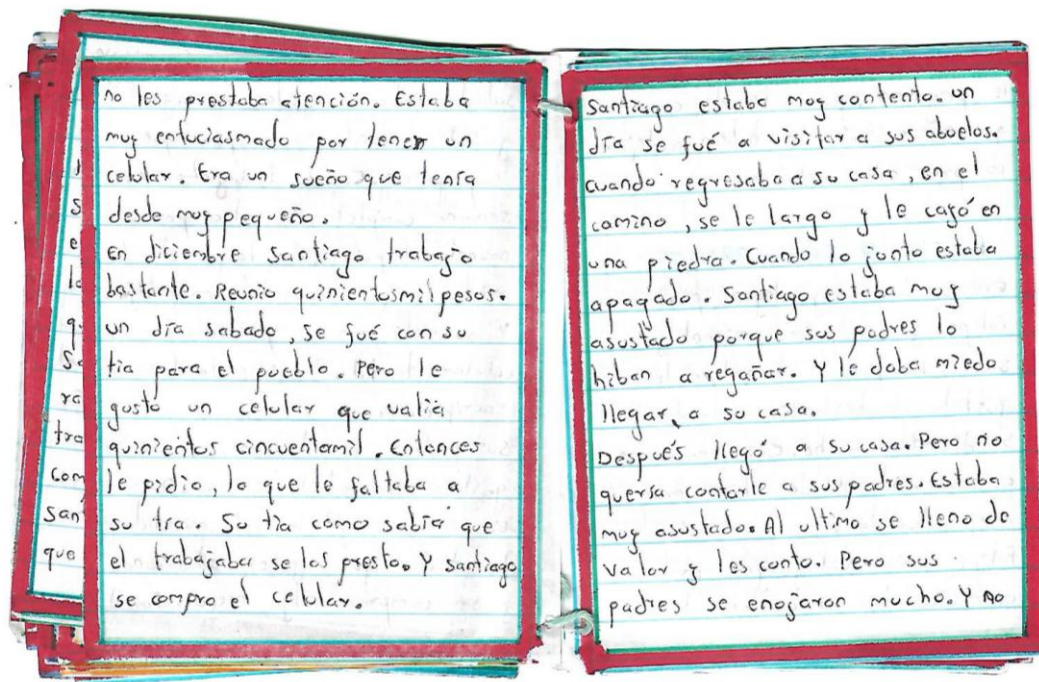 no les prestaba atención. Estaba
muy entuciasmado por tener un
celular. Era un sueño que tenía
desde muy pequeño.
En diciembre Santiago trabajo
bastante. Reunio quinientosmil pesos.
un día sabado, se fué con su
tia para el pueblo. Pero le
gusto un celular que valia
quinientos cincuentamil. Entonces
le pidio, lo que le faltaba a
su tía. Su tia como sabia que
el trabajaba se los presto. Y santiago
se compro el celular.
Santiago estaba muy contento. un
día se fué a visitar a sus abuelos.
cuando regresaba a su casa, en el
camino, se le largo y le cayó en
una piedra. Cuando lo junto estaba
apagado. Santiago estaba muy
asustado porque sus padres lo
hiban a regañar. Y le daba miedo
llegar, a su casa.
Después llegó a su casa. Pero no
quería contarle a sus padres. Estaba
muy asustado. Al ultimo se lleno de
valor y les conto. Pero sus
padres se enojaron mucho. Y no